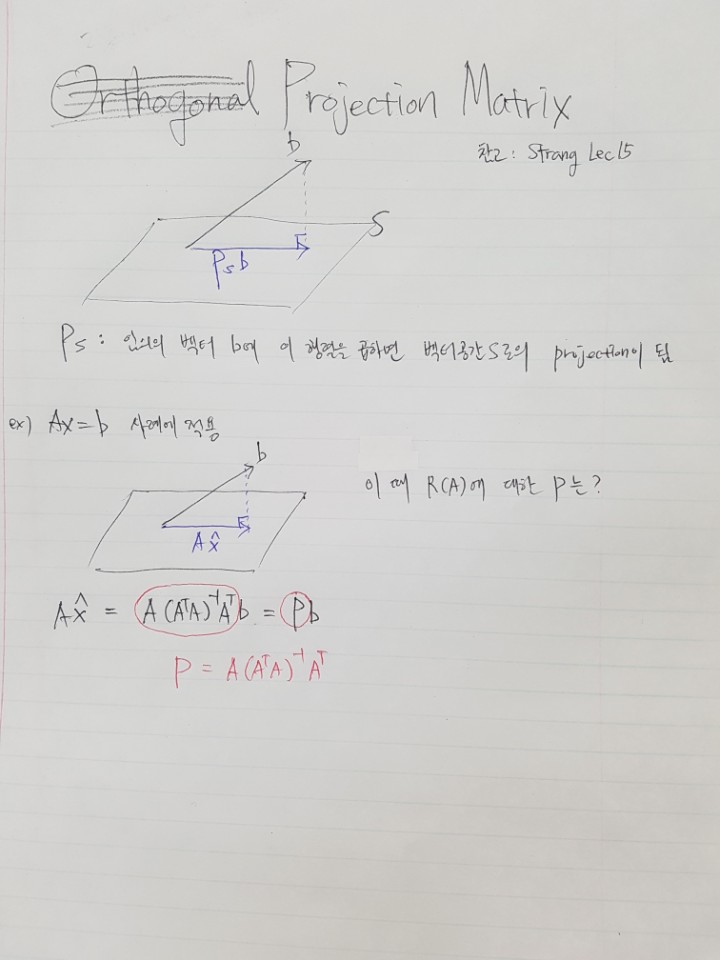 Orthogonal Projection Matrix
참고: Strang Lec 15
b
S
Psb
Ps : 임의의 벡터 b에 이 행렬을 곱하면 벡터공간 S로의 projection이 됨
ex) Ax=b 사례에 적용
b
이 때 R(A)에 대한 P는?
Ax̂
Ax̂ = A(AᵀA)⁻¹Aᵀb = Pb
P = A(AᵀA)⁻¹Aᵀ